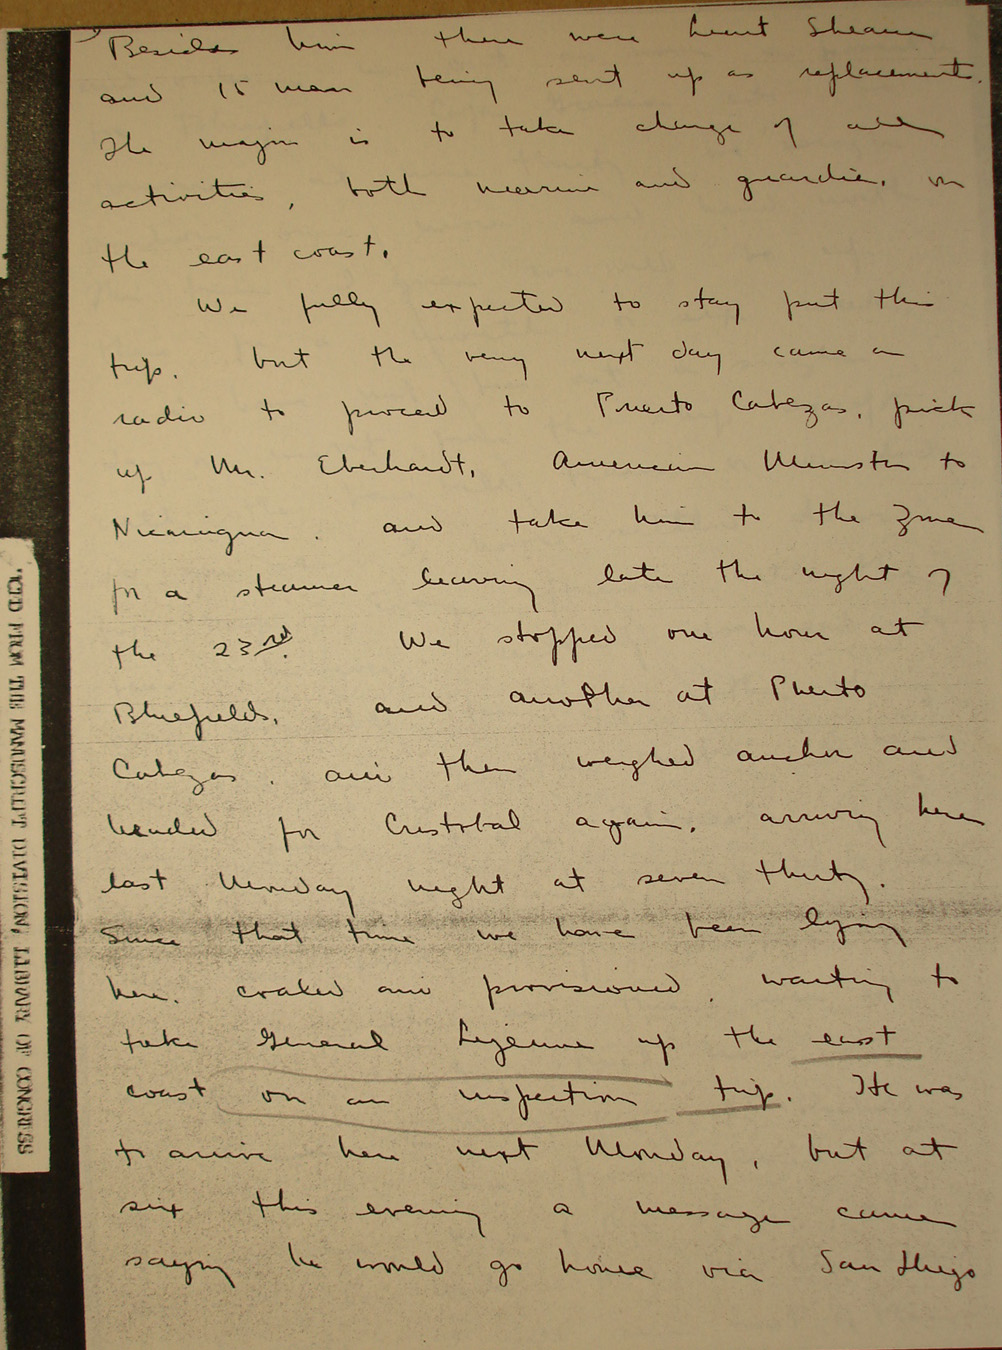 Besides him there were Lieut Shearer
and 15 men being sent up as replacements.
The major is to take charge of all
activities, both marine and guardia, on
the east coast.
We fully expected to stay put this
trip, but the very next day came a
radio to proceed to Puerto Cabezas, pick
up Mr. Eberhardt, American Minister to
Nicaragua, and take him to the Zone
for a steamer leaving late the night of
the 23rd. We stopped one hour at
Bluefields, and another at Puerto
Cabezas, and then weighed anchor and
headed for Cristobal again, arriving here
last Monday night at seven thirty.
Since that time we have been lying
here, coaled and provisioned, waiting to
take General Lejeune up the east
coast on an inspection trip. He was
to arrive here next Monday, but at
six this evening a message came
saying he would go home via San Diego
FROM THE MANUSCRIPT DIVISION, LIBRARY OF CONGRESS